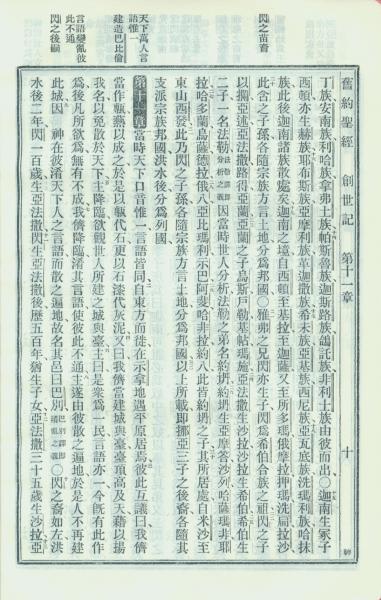 閃之苗裔
天下萬人言
語惟一
建造巴比倫
言語變亂彼
此不通
閃之後嗣
舊約聖經 創世記 第十一章 十
丁族安南族利哈族拿弗土族帕斯魯族迦斯路族鴿託族非利士族由彼而出〇迦南生冢子
西頓亦生赫族耶布斯族亞摩利族革迦撒族希未族亞基族西尼族亞瓦底族洗瑪利族哈抹
族此後迦南諸族散處矣迦南之境自西頓至基拉至迦薩又至所多瑪俄摩拉押瑪洗扁拉沙
此含之子孫各隨宗族方言土地分爲邦國〇雅弗之兄閃亦生子閃爲希伯合族之祖閃之子
以攔亞述亞法撒路得亞蘭亞蘭之子烏斯戶勒基帖瑪施亞法撒生沙拉沙拉生希伯希伯生
二子一名法勒法勒譯卽分析之義因當時世人分析法勒之弟名約坍約坍生亞摩答沙列哈薩瑪非耶
拉哈多蘭烏薩德拉俄八亞比瑪利示巴阿斐哈非拉約八此皆約坍之子其所居處自米沙至
東山西發此乃閃之子孫各隨宗族方言土地分爲邦國以上所載卽挪亞三子之後裔各隨其
支派宗族邦國洪水後分爲列國
第十一章當時天下口音惟一言語皆同自東方而徙在示拿地遇平原居焉彼此互議曰我儕
當作甎爇以成之於是以甎代石更以石漆代灰泥又曰我儕當建城與臺臺頂高及天藉以揚
我名以免散於天下主降臨欲觀世人所建之城與臺主曰是衆爲一民言語亦一今旣有此作
爲後凡所欲爲無有不成我儕降臨淆其言語使彼此不通主遂由彼散之遍地於是人不再建
此城因 神在彼淆天下人之言語而散之遍地故名其邑曰巴別巴別譯卽淆亂之義〇閃之裔如左洪
水後二年閃一百歲生亞法撒閃生亞法撒後歷五百年猶生子女亞法撒三十五歲生沙拉亞